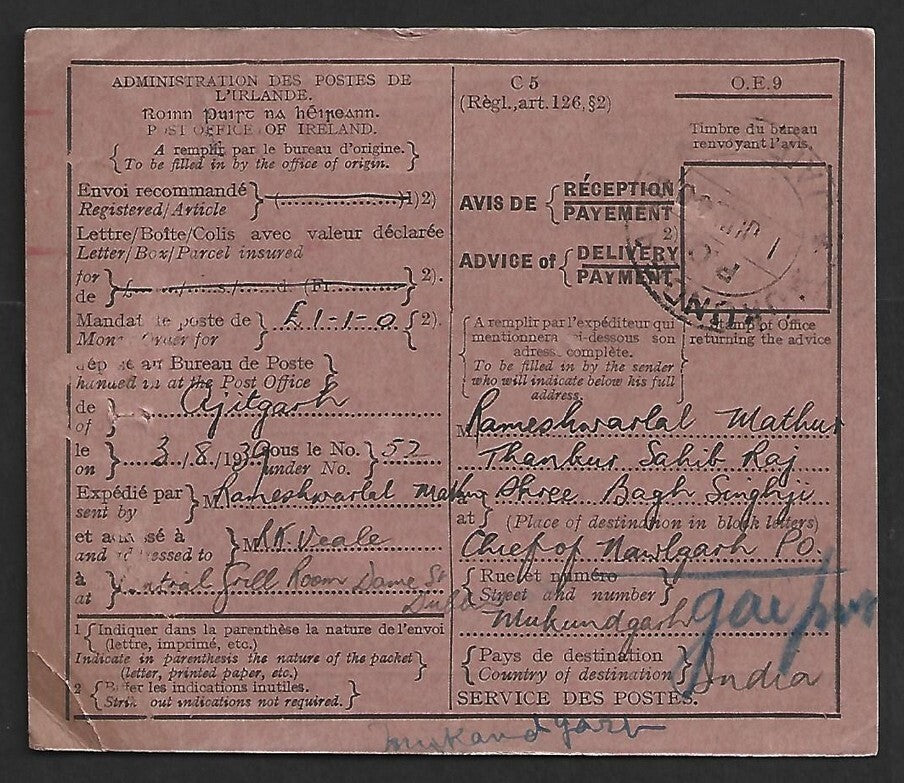 ADMINISTRATION DES POSTES DE
L'IRLANDE.
Roinn Puirt na hÉireann.
POST OFFICE OF IRELAND.
A remplir par le bureau d'origine.
To be filled in by the office of origin.
Envoi recommandé
Registered/Article
(..........)1)2)
Lettre/Boîte/Colis avec valeur déclarée
Letter/Box/Parcel insured
for
de
£...../.....s./.....d. (Fr..........) 2).
Mandat de poste de
Money Order for
£1-1-0 2).
déposé au Bureau de Poste
handed in at the Post Office
de
of
Ajitgarh
le
on
3/8/1939 sous le No.
under No.
52
Expédié par
sent by
M Rameshwarlal Mathur
et adressé à
and addressed to
M K Veale
à
at
Central Grill Room Dame St
Dublin
1 Indiquer dans la parenthèse la nature de l'envoi
(lettre, imprimé, etc.)
Indicate in parenthesis the nature of the packet
(letter, printed paper, etc.)
2 Biffer les indications inutiles.
Strike out indications not required.
C 5
(Règl., art. 126, §2)
O.E.9
Timbre du bureau
renvoyant l'avis.
AVIS DE
RÉCEPTION
PAYEMENT
2)
ADVICE of
DELIVERY
PAYMENT
Stamp of Office
returning the advice
A remplir par l'expéditeur qui
mentionnera ci-dessous son
adresse complète.
To be filled in by the sender
who will indicate below his full
address.
M Rameshwarlal Mathur
Thankur Sahib Raj
Shree Bagh Singhji
at
(Place of destination in block letters)
Chief of Nawlgarh P.O.
Rue et numéro
Street and number
Mukundgarh
Pays de destination
Country of destination
India
SERVICE DES POSTES.
mukandgarh